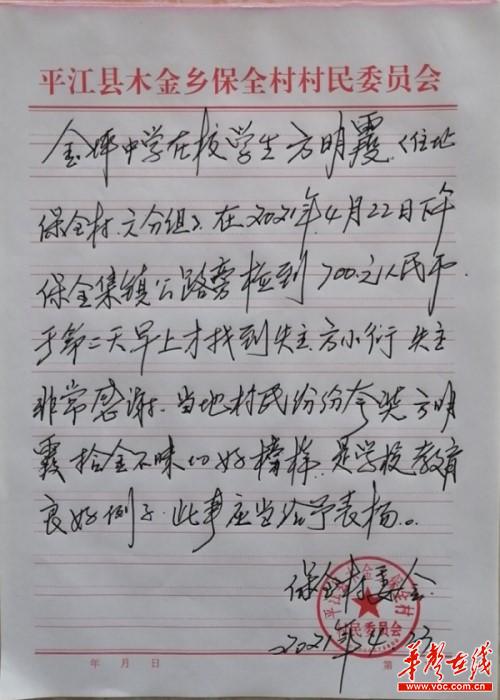 平江县木金乡保全村村民委员会
金坪中学在校学生方明霞（住址
保全村六分组）在2021年4月22日下午
保全集镇公路旁捡到700元人民币.
于第二天早上才找到失主方小衍 失主
非常感谢.当地村民份份夸奖方明
霞拾金不昧的好榜样.是学校教育
良好例子.此事应当给予表杨。
保全村委会
2021年4.23
平江县木金乡保全村
村民委员会
年 月 日
第
华声在线
www.voc.com.cn